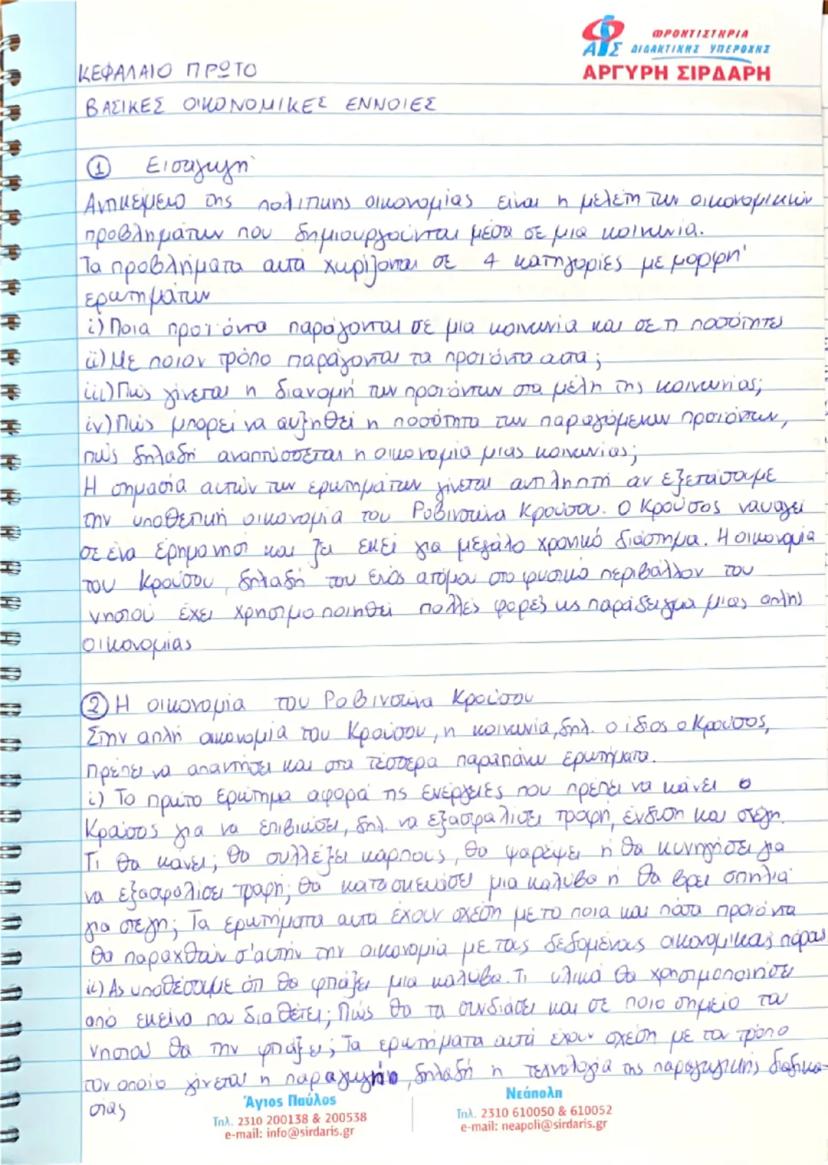 ΦΡΟΝΤΙΣΤΗΡΙΑ
ΔΙΔΑΚΤΙΚΗΣ ΥΠΕΡΟΧΗΣ
ΑΡΓΥΡΗ ΣΙΡΔΑΡΗ
ΚΕΦΑΛΑΙΟ ΠΡΩΤΟ
ΒΑΣΙΚΕΣ ΟΙΚΟΝΟΜΙΚΕΣ ΕΝΝΟΙΕΣ
① Εισαγωγή
Αντικείμενο της πολιτικής οικονομίας είναι η μελέτη των οικονομικών
προβλημάτων που δημιουργούνται μέσα σε μια κοινωνία.
Τα προβλήματα αυτά χωρίζονται σε 4 κατηγορίες με μορφή
ερωτημάτων
i) Ποια προϊόντα παράγονται σε μια κοινωνία και σε τι ποσότητες
ii) Με ποιον τρόπο παράγονται τα προϊόντα αυτα;
iii) Πώς γίνεται η διανομή των προϊόντων στα μέλη της κοινωνίας;
iv) Πώς μπορεί να αυξηθεί η ποσότητα των παραγόμενων προϊόντων,
πώς δηλαδή αναπτύσσεται η οικονομία μιας κοινωνίας;
Η σημασία αυτών των ερωτημάτων γίνεται αντιληπτή αν εξετάσουμε
την υποθετική οικονομία του Ροβινσώνα Κρούσου. Ο Κρούσος ναυαγεί
σε ένα έρημο νησί και ζει εκεί για μεγάλο χρονικό διάστημα. Η οικονομία
του Κρούσου, δηλαδή του ενός ατόμου στο φυσικό περιβάλλον του
νησιού έχει χρησιμοποιηθεί πολλές φορές ως παράδειγμα μιας απλής
οικονομίας
② Η οικονομία του Ροβινσώνα Κρούσου
Στην απλή οικονομία του Κρούσου, η κοινωνία, δηλ. ο ίδιος ο Κρούσος,
πρέπει να απαντήσει και στα τέσσερα παραπάνω ερωτήματα.
i) Το πρώτο ερώτημα αφορά της ενέργειες που πρέπει να κάνει ο
Κρούσος για να επιβιώσει, δηλ. να εξασφαλίσει τροφή, ένδυση και στέγη.
Τι θα κάνει; Θα συλλέξει καρπους, θα ψαρέψει ή θα κυνηγήσει για
να εξασφαλίσει τροφή; θα κατασκευάσει μια καλύβα ή θα βρει σπηλιά
για στέγη; Τα ερωτήματα αυτά έχουν σχέση με το ποια και πόσα προϊόντα
θα παραχθούν σ'αυτήν την οικονομία με τους δεδομένους οικονομικους πόρους
ii) Ας υποθέσουμε ότι θα φτιάξει μια καλύβα. Τι υλικά θα χρησιμοποιήσει
από εκείνα που διαθέτει; Πώς θα τα συνδιάσει και σε ποιο σημείο του
νησιού θα την φτιάξει; Τα ερωτήματα αυτά έχουν σχέση με τον τρόπο
τον οποίο γίνεται η παραγωγή, δηλαδή η τεχνολογία της παραγωγικής διαδικα-
σίας
Άγιος Παύλος
Τηλ. 2310 200138 & 200538
e-mail: info@sirdaris.gr
Νεάπολη
Τηλ. 2310 610050 & 610052
e-mail: neapoli@sirdaris.gr